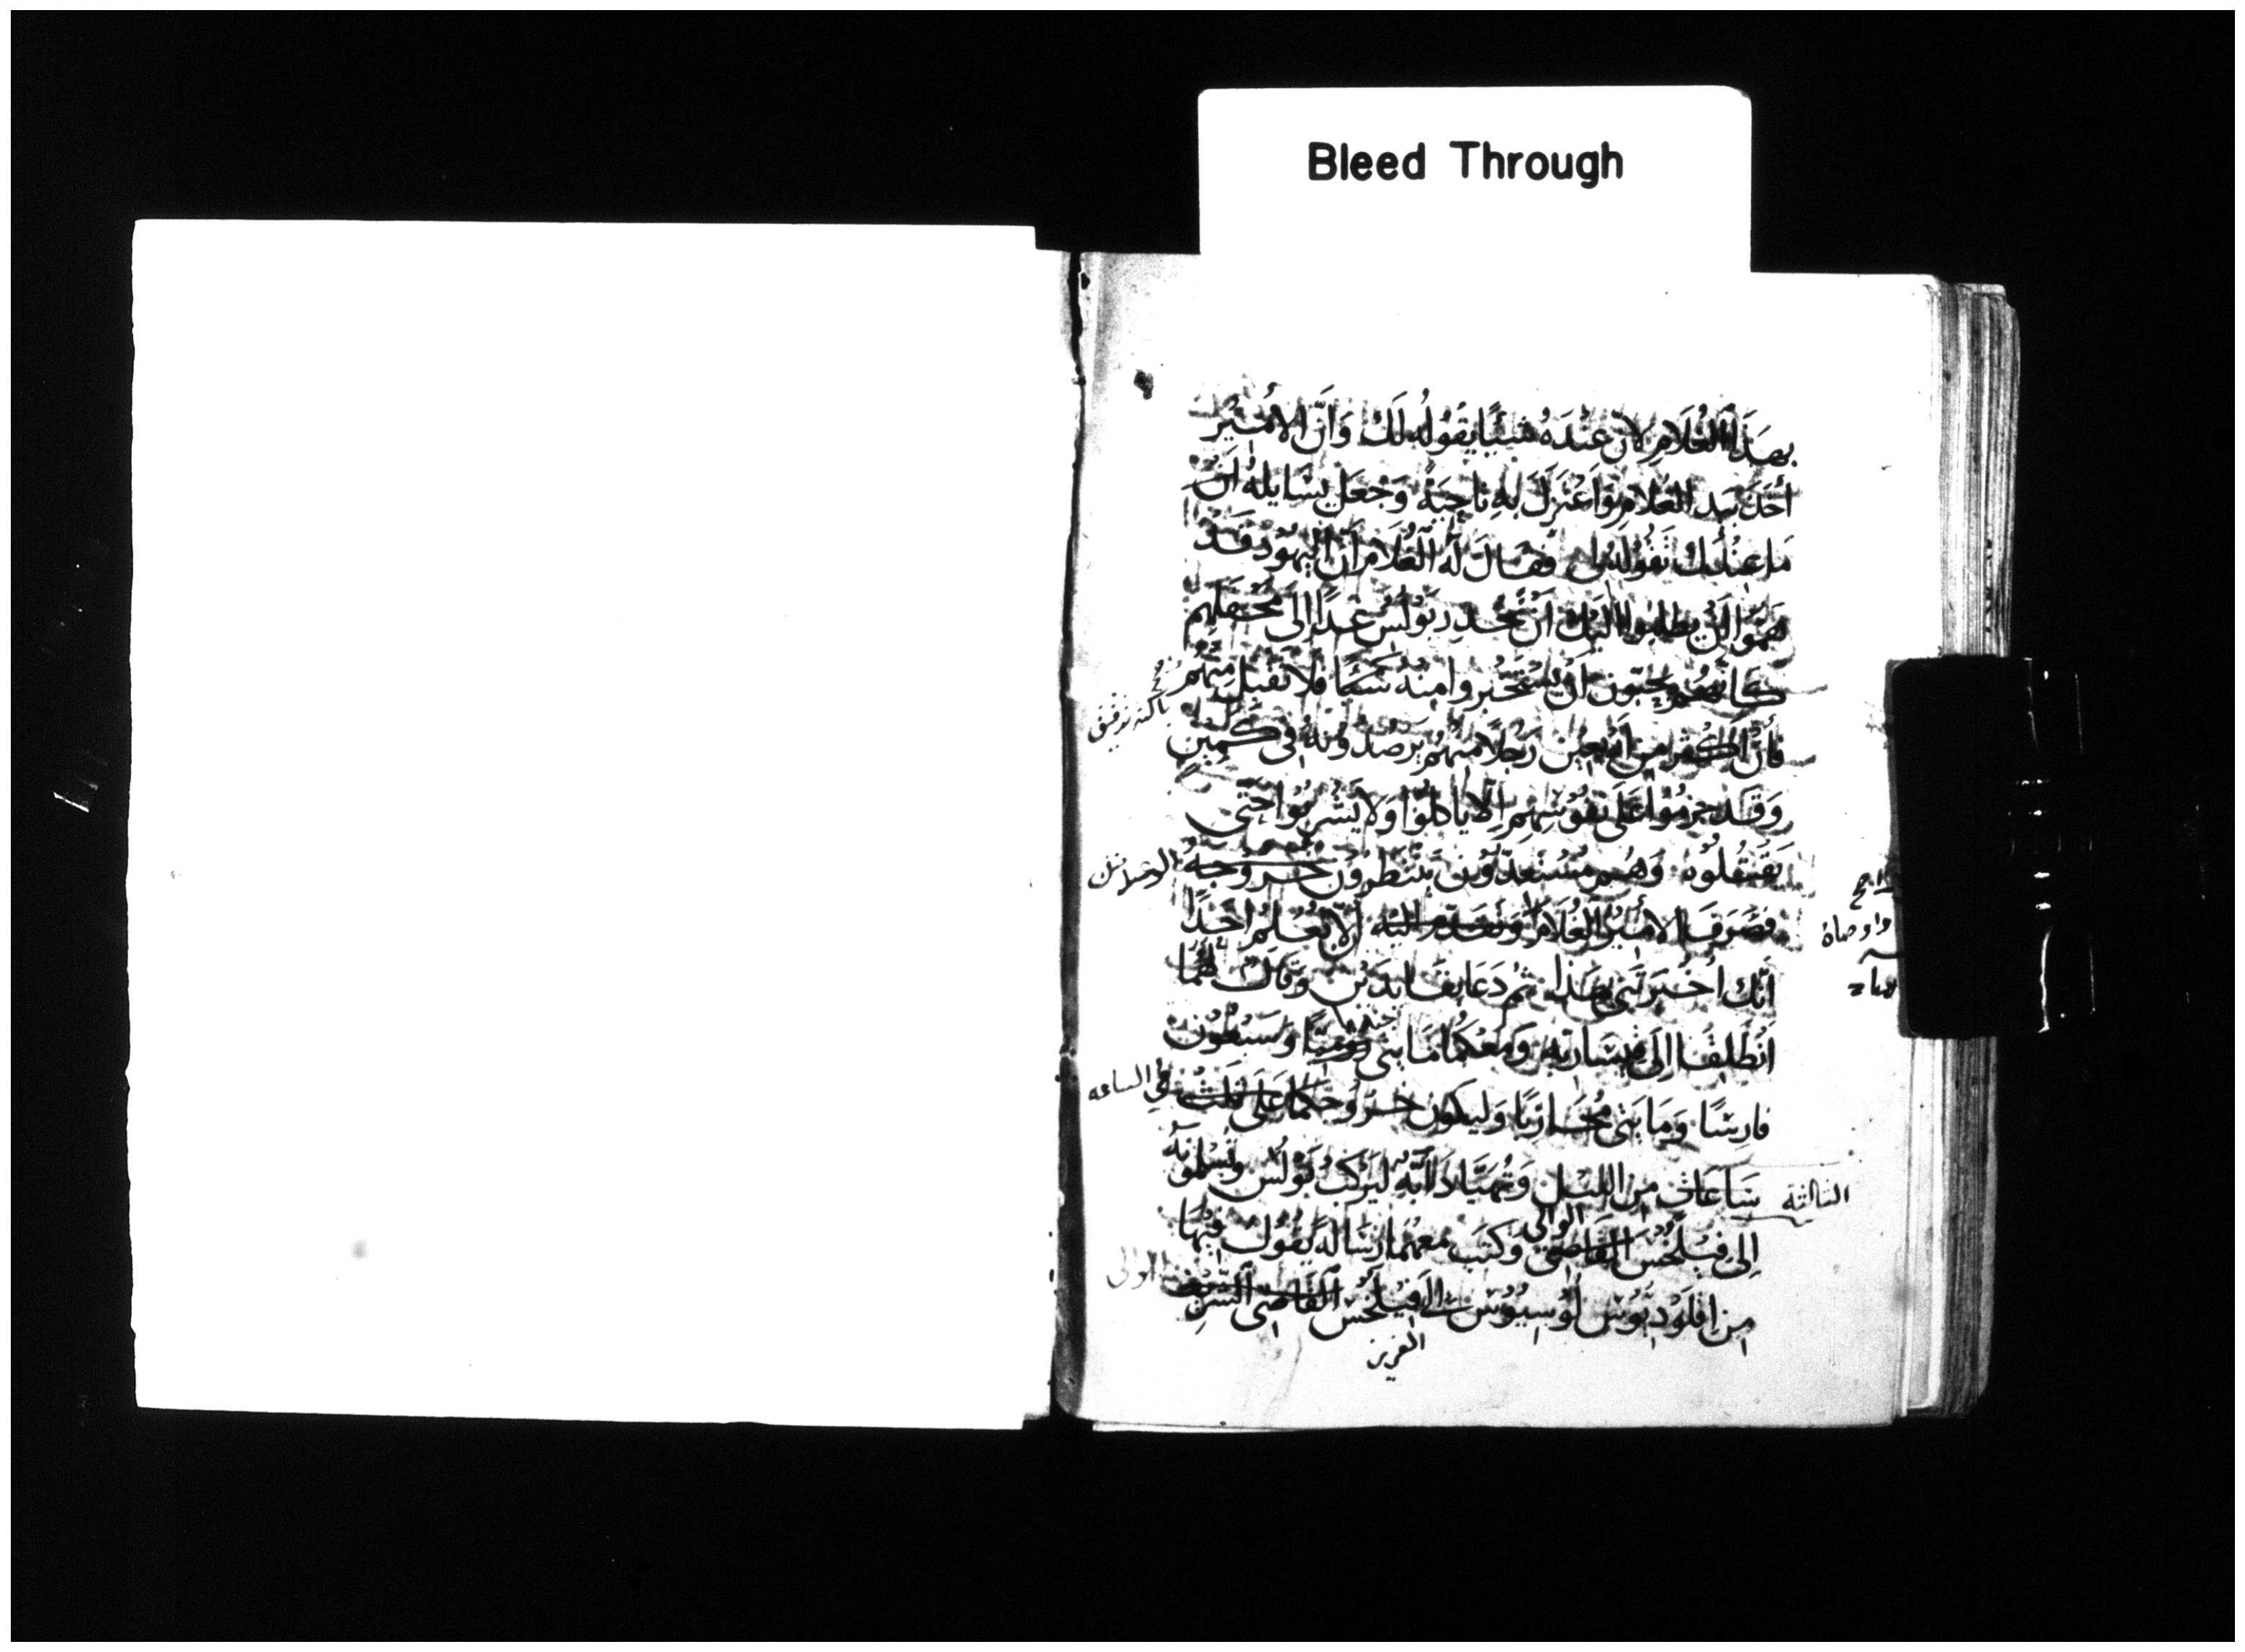 Bleed Through
بهذا الغُلَامِ لانّ عنْدَهُ شيئًا يقُولُه لَكَ وَانَّ الامِيْرَ
أخَذَ بيَد الغُلامِ وَاعْتزَلَ بهِ ناحِيَةً وَجَعَل يسَايلهُ انْ
مَا عِنْدك تَقُولهُ لى فقَالَ لَه الغُلَامُ انّ اليَهُودَ قَدْ
هَمّوا انْ يطلبوا اليْك انْ تُحْدِرَ بَوْلُسَ غدًا الى مَحْفلِهم
كانّهُم يحبّون انْ يسْتَخْبروا منهُ شَيًا فلا تَقْبَل مِنْهُم
فانَّ اكثر من ارْبعين رَجُلًا منهُم يرْصدُونهُ فى كَمينٍ
وَقَد حرَمُوا عَلى نفُوسِهِم الّا ياكلُوا وَلَا يشْربُوا حَتّى
يَقتُلُوهُ وَهُم مُسْتعدّوْن ينْتظِرُون خرُوجهُ
فصَرَفَ الامِيْرُ الغُلَامَ وتقدّم اليْه الّا يُعْلِمَ احَدًا
انّك اخْبَرتَنى بهَذا ثم دَعَا بقَايدَيْن وقَالَ لهُما
انْطَلِقَا الى قيْسَاريّه وَمعكُمَا مَايتى روميًا وسَبْعُوْن
جنديا
فارِسًا وَمَايَتى مُحَاربًا وَليكون خرُوجكُمَا عَلَى ثلث
في الساعه
سَاعَاتٍ مِن الليْل وَتُهَيّا دَابّةٌ ليَرْكَبَ بَولُس وتُسلمونهُ
الثالثة
الوالي
الى فيْلِخُسَ القَاضى وَكتَب معهُمَا رسَالةً يَقُولُ فِيْهَا
الوالى
مِن اقلَوْدِيُوْس لُوْسِيُوْس الى فيْلِخُسَ القَاضى الشّرِيْف
العزيز